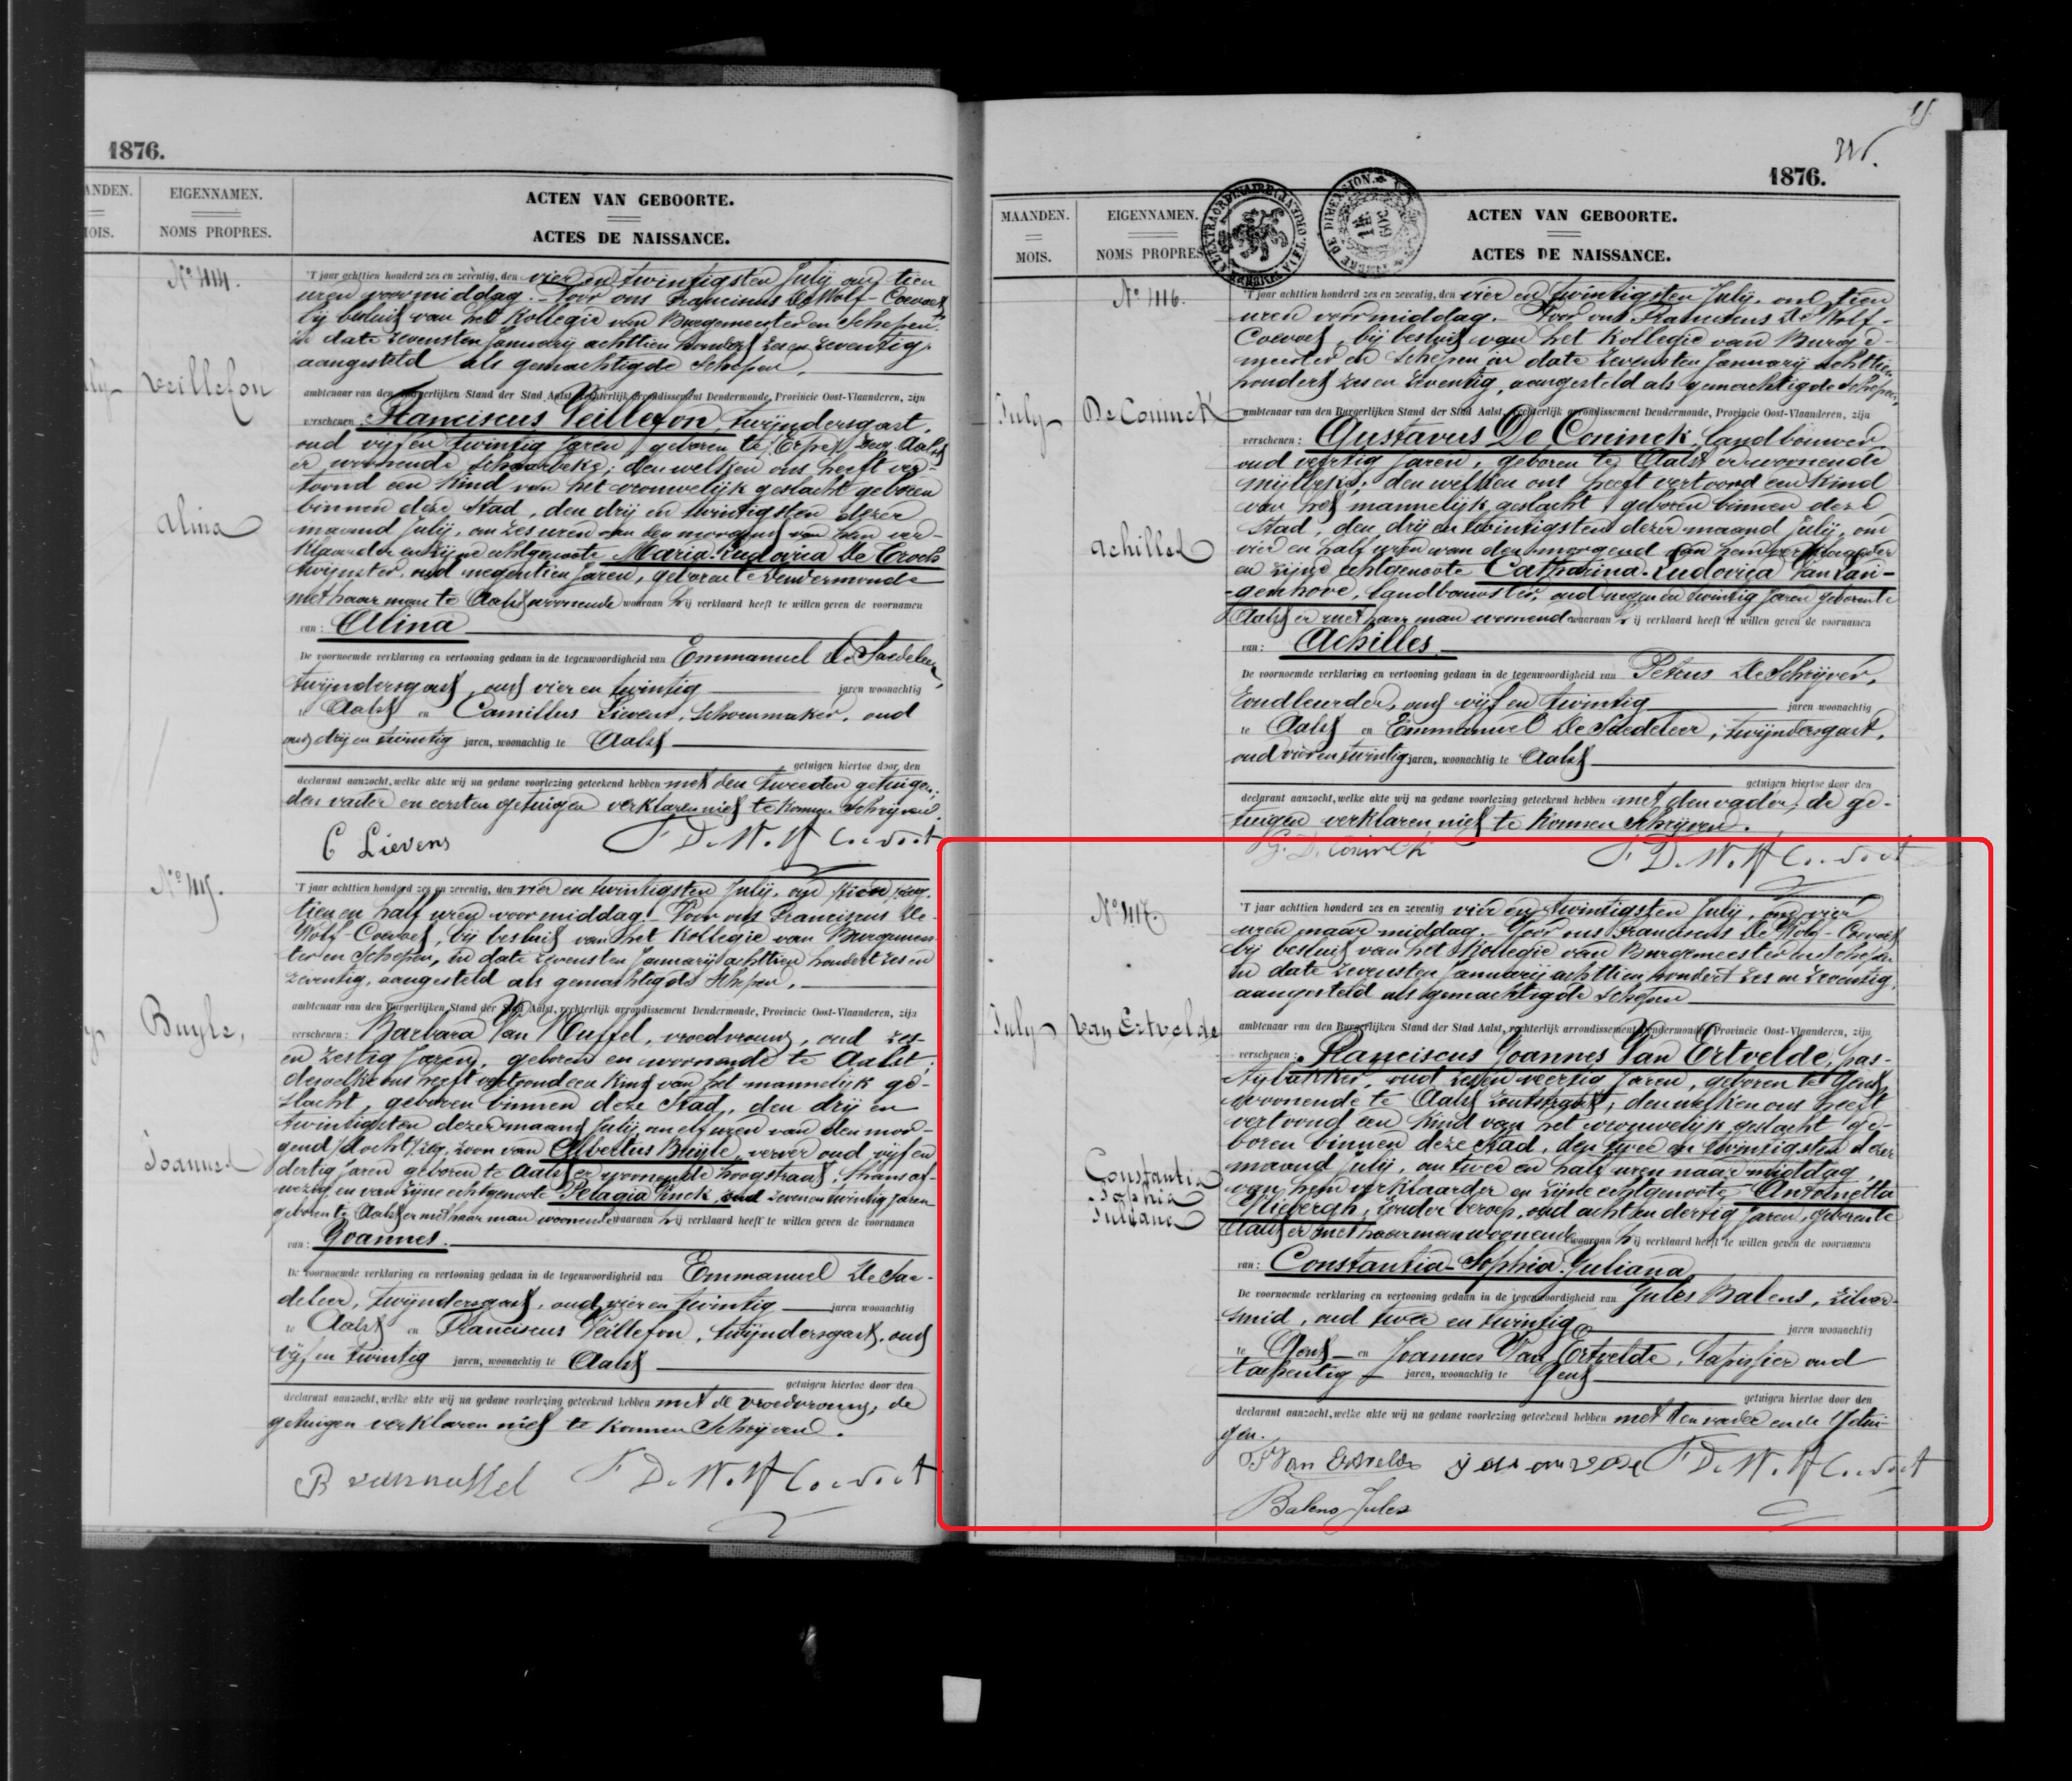 1876.
ANDEN.
OIS.
EIGENNAMEN.
NOMS PROPRES.
ACTEN VAN GEBOORTE.
ACTES DE NAISSANCE.
No 414.
Veillefon
Alina
'T jaar achttien honderd zes en zeventig, den vier en twintigsten July om tien
uren voormiddag. - Voor ons Franciscus De Wolf-Coevoet
bij besluit van het Kollegie van Burgemeester en Schepen
in date zevensten January achttien hondert zes en zeventig,
aangesteld als gemachtigde Schepen.
ambtenaar van den Burgerlijken Stand der Stad Aalst, rechterlijk arrondissement Dendermonde, Provincie Oost-Vlaanderen, zijn
verschenen: Franciscus Veillefon, twijndersgast,
oud vijf en twintig Jaren, geboren te Erpe
er woonende Schaarbeke; denwelken ons heeft ver-
toond een Kind van het vrouwelijk geslacht geboren
binnen deze Stad, den drij en twintigsten dezer
maand July, om zes uren van den morgend van hem ver-
klaarder en zijne echtgenoote Maria Ludovica De Croock
twijnster, oud negentien Jaren, geboren te Dendermonde
met haar man te Aalst woonende waaraan hij verklaard heeft te willen geven de voornamen
van: Alina
De voornoemde verklaring en vertooning gedaan in de tegenwoordigheid van Emmanuel De Saedeleer,
twijndersgast, oud vier en twintig jaren woonachtig
te Aalst en Camillus Lievens, Schoenmaker, oud
oud drij en twintig jaren, woonachtig te Aalst
getuigen hiertoe door den
declarant aanzocht, welke akte wij na gedane voorlezing geteekend hebben met den tweeden getuigen;
den vader en eersten getuigen verklaren niet te konnen Schrijven.
C Lievens F D. Wolf Coevoet
No 415.
Buyle,
Joannes
'T jaar achttien honderd zes en zeventig, den vier en twintigsten July, om tien zeg
tien en half uren voormiddag. Voor ons Franciscus De
Wolf-Coevoet, bij besluit van het Kollegie van Burgemees-
ter en Schepen, in date zevensten January achttien hondert zes en
zeventig, aangesteld als gemachtigde Schepen.
ambtenaar van den Burgerlijken Stand der Stad Aalst, rechterlijk arrondissement Dendermonde, Provincie Oost-Vlaanderen, zijn
verschenen: Barbara Van Nuffel, vroedvrouw, oud zes-
en zestig Jaren, geboren en woonende te Aalst;
dewelke ons heeft vertoond een Kind van het mannelijk ge-
slacht, geboren binnen deze Stad, den drij en
twintigsten dezer maand July om elf uren van den mor-
gend, zoon van Albertus Buyle, verver oud vijf en
dertig Jaren geboren te Aalst er woonende hoogstraat, thans af-
wezig en van zijne echtgenoote Pelagia Vinck, oud zeven en twintig Jaren
geboren te Aalst er met haar man woonende waaraan hij verklaard heeft te willen geven de voornamen
van: Joannes.
De voornoemde verklaring en vertooning gedaan in de tegenwoordigheid van Emmanuel De Sae-
deleer, twijndersgast, oud vier en twintig jaren woonachtig
te Aalst en Franciscus Veillefon, twijndersgast, oud
vijf en twintig jaren, woonachtig te Aalst
getuigen hiertoe door den
declarant aanzocht, welke akte wij na gedane voorlezing geteekend hebben met de vroedvrouw; de
getuigen verklaren niet te konnen Schrijven.
B van nuffel F D. Wolf Coevoet
1876.
MAANDEN.
MOIS.
EIGENNAMEN.
NOMS PROPRES
ACTEN VAN GEBOORTE.
ACTES DE NAISSANCE.
No 416.
July
De Coninck
Achilles
'T jaar achttien honderd zes en zeventig, den vier en twintigsten July, om tien
uren voormiddag. Voor ons Franciscus De Wolf-
Coevoet, bij besluit van het Kollegie van Burge-
meester en Schepen in date zevensten January achttien
hondert zes en zeventig, aangesteld als gemachtigde Schepen,
ambtenaar van den Burgerlijken Stand der Stad Aalst, rechterlijk arrondissement Dendermonde, Provincie Oost-Vlaanderen, zijn
verschenen: Gustavus De Coninck, landbouwer
oud veertig Jaren, geboren te Aalst er woonende
Mijlbeke; denwelken ons heeft vertoond een Kind
van het mannelijk geslacht geboren binnen deze
Stad, den drij en twintigsten dezer maand July, om
vier en half uren van den morgend van hem verklaarder
en zijne echtgenoote Catharina-Ludovica Van Lan-
-genhove, landbouwster, oud negen en twintig Jaren geboren te
Aalst er met haar man woonende waaraan hij verklaard heeft te willen geven de voornamen
van: Achilles.
De voornoemde verklaring en vertooning gedaan in de tegenwoordigheid van Petrus De Schrijver,
Zoudleurder, oud vijf en twintig jaren woonachtig
te Aalst en Emmanuel De Saedeleer, twijndersgast,
oud vier en twintig jaren, woonachtig te Aalst
getuigen hiertoe door den
declarant aanzocht, welke akte wij na gedane voorlezing geteekend hebben met den vader; de ge-
tuigen verklaren niet te konnen Schrijven.
G. D. Coninck F D. Wolf Coevoet
No 417.
July
Van Ertvelde
Constantia
Sophia
Juliana
'T jaar achttien honderd zes en zeventig vier en twintigsten July, om vier
uren naar middag. Voor ons Franciscus De Wolf-Coevoet
bij besluit van het Kollegie van Burgemeester en Schepen
in date zevensten January achttien hondert zes en zeventig,
aangesteld als gemachtigde Schepen
ambtenaar van den Burgerlijken Stand der Stad Aalst, rechterlijk arrondissement Dendermonde, Provincie Oost-Vlaanderen, zijn
verschenen: Franciscus Joannes Van Ertvelde, pas-
teybakker, oud zes en veertig Jaren, geboren te Gent,
woonende te Aalst Zoutstraat; denwelken ons heeft
vertoond een Kind van het vrouwelyk geslacht ge-
boren binnen deze Stad, den twee en twintigsten dezer
maand July, om twee en half uren naar middag,
van hem verklaarder en zijne echtgenoote Antonetta
Vliebergh, zonder beroep, oud acht en dertig Jaren, geboren te
Aalst er met haar man woonende waaraan hij verklaard heeft te willen geven de voornamen
van: Constantia-Sophia-Juliana
De voornoemde verklaring en vertooning gedaan in de tegenwoordigheid van Jules Balens, zilver-
smid, oud twee en twintig jaren woonachtig
te Gent en Joannes Van Ertvelde, Tapissier oud
twenty jaren, woonachtig te Gent
getuigen hiertoe door den
declarant aanzocht, welke akte wij na gedane voorlezing geteekend hebben met den vader en de getui-
gen.
F Van Ertvelde F D. Wolf Coevoet
Balens Jules